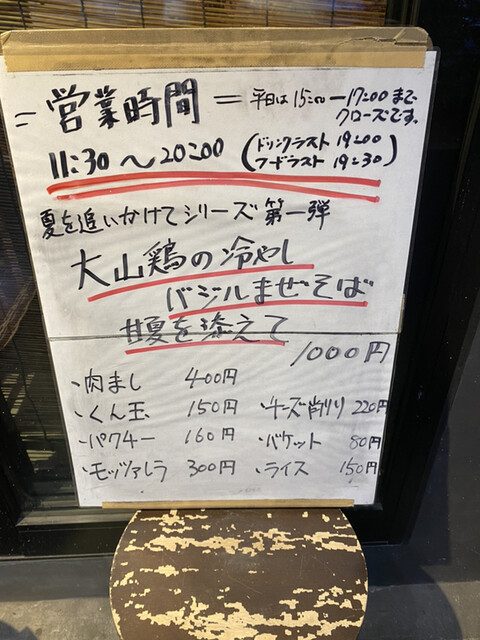 ＝営業時間＝ 平日は15:00ー17:00まで
クローズです。
11:30〜20:00 (ドリンクラスト 19:00
フードラスト 19:30)
夏を追いかけてシリーズ第一弾
大山鶏の冷やし
バジルまぜそば
甘夏を添えて
1000円
・肉まし 400円
・くん玉 150円 ・チーズ削り 220円
・パクチー 160円 ・バケット 80円
・モッツァレラ 300円 ・ライス 150円